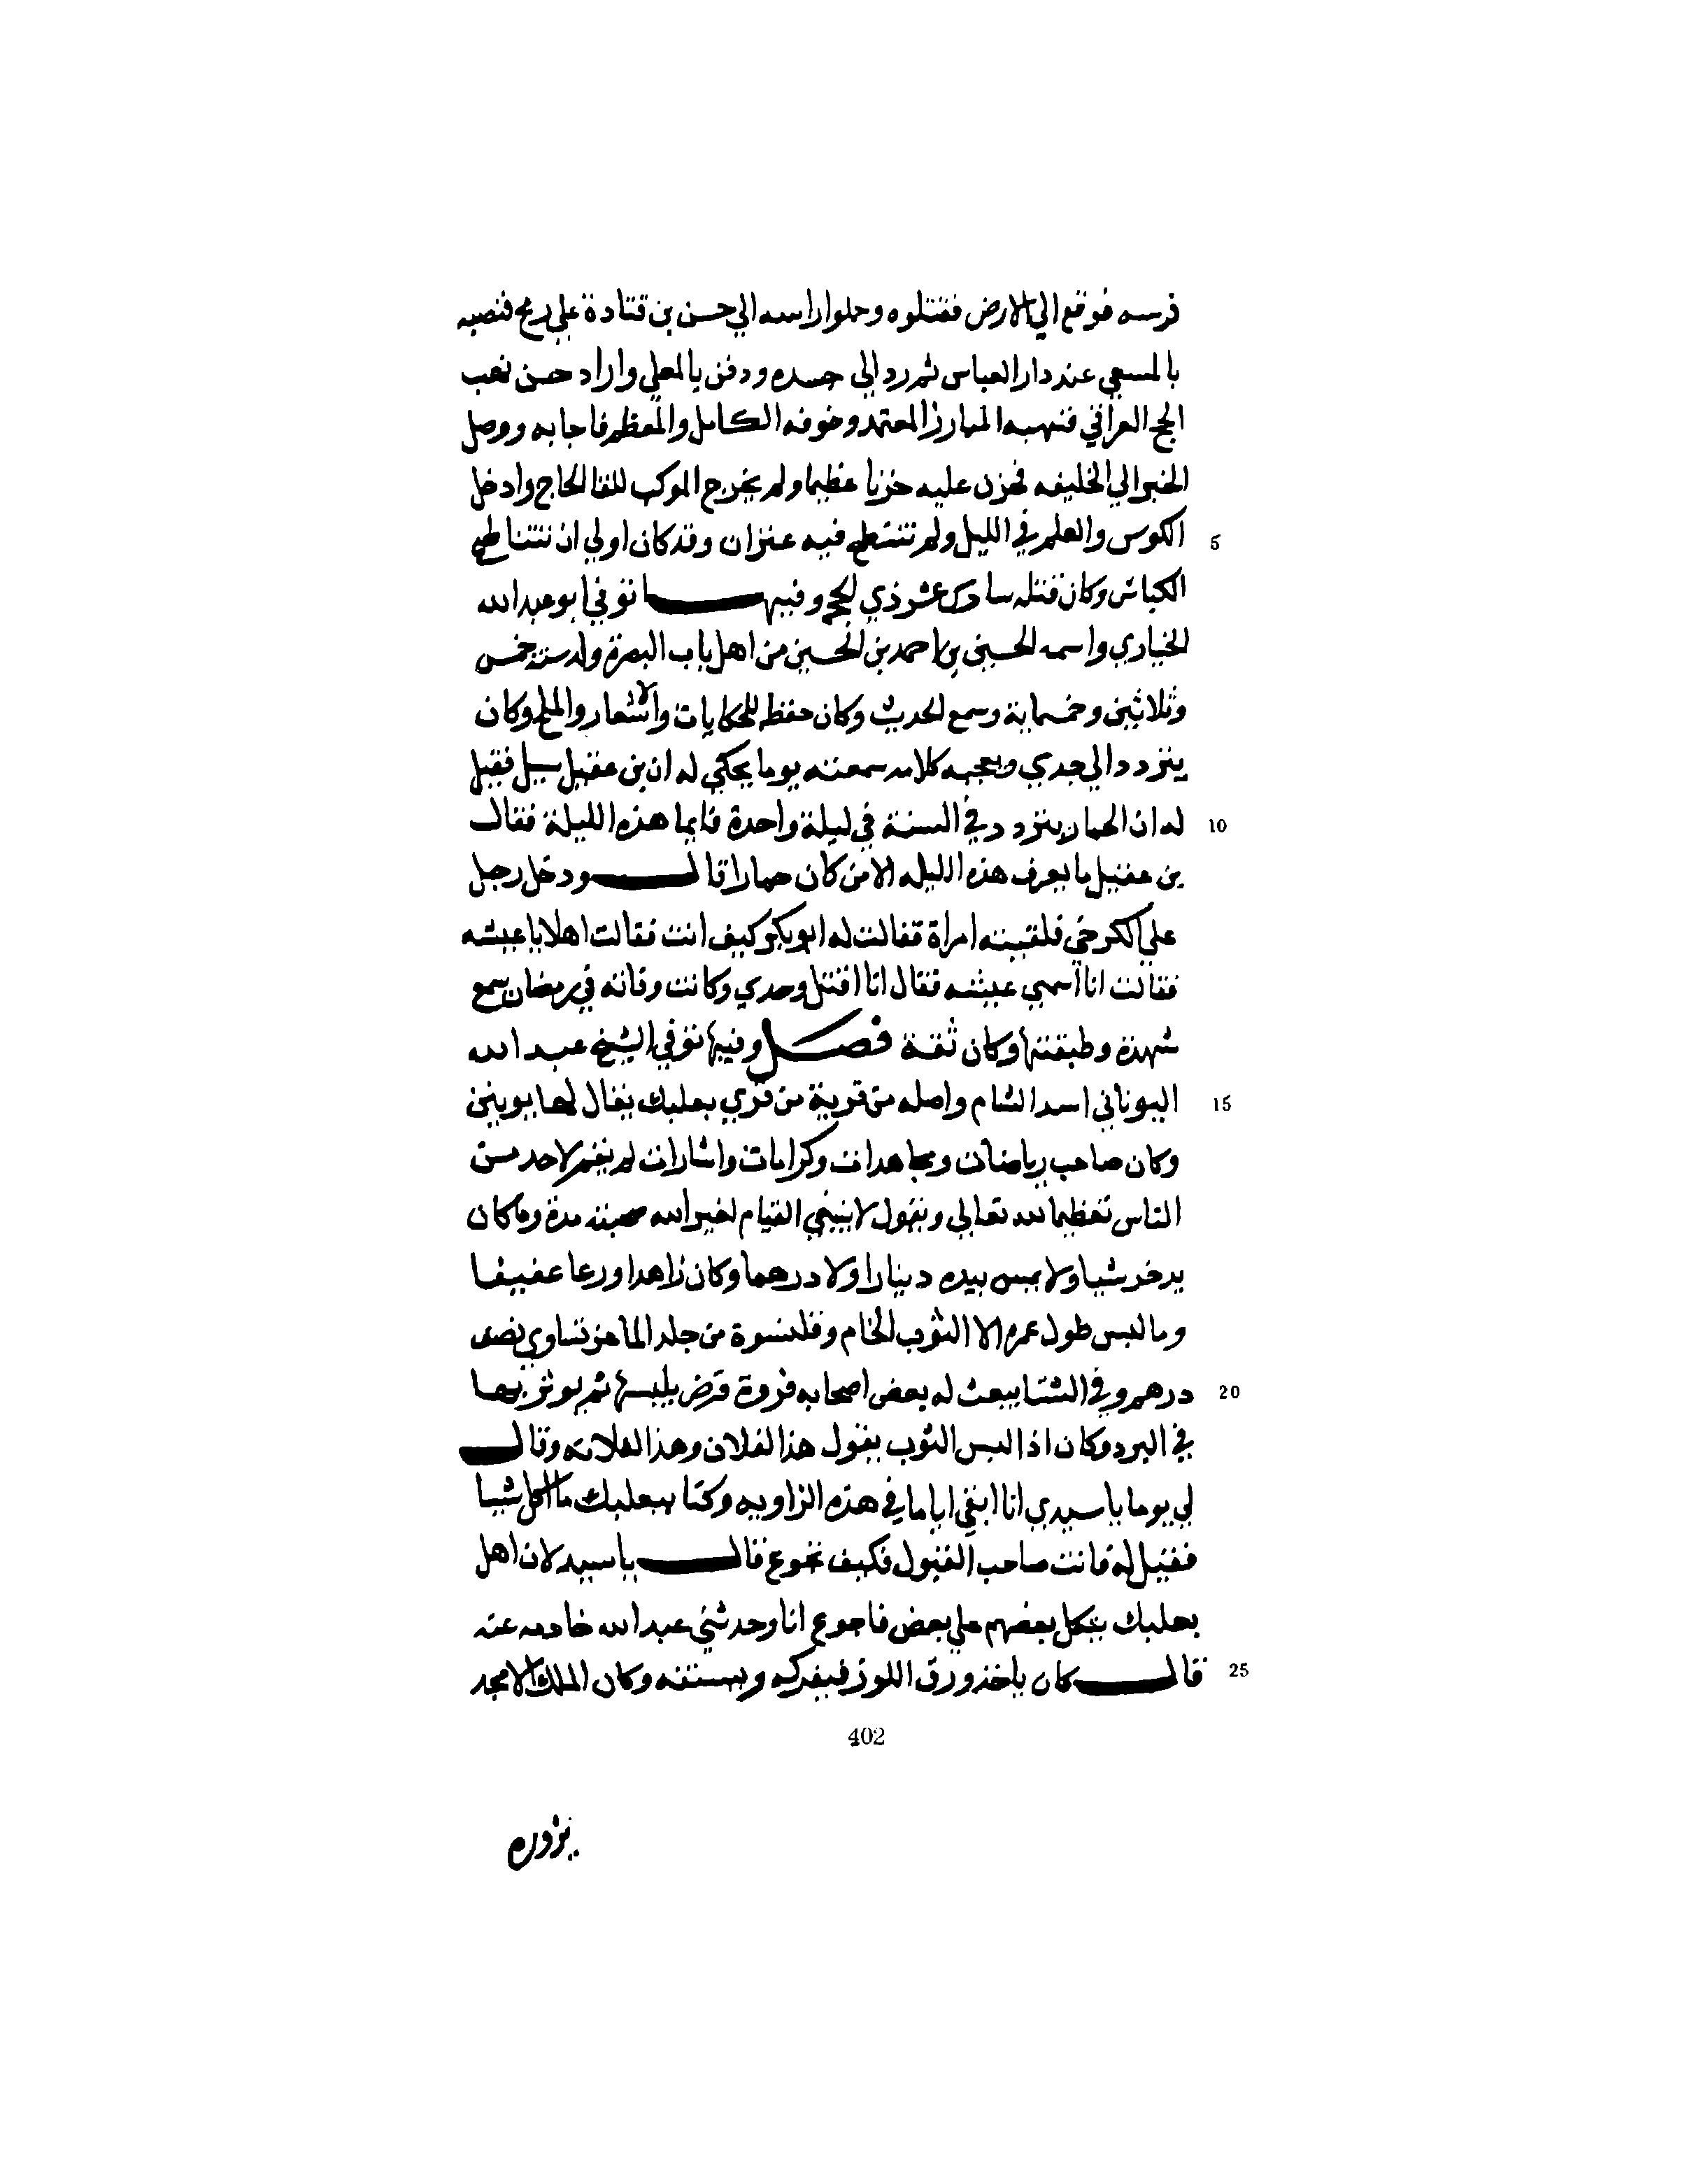 فرسه فوقع الي الارض فقتلوه وحملوا راسه الي حسن بن قتادة علي رمح فنصبه
بالمسعي عند دار العباس ثم رد الي جسده ودفن بالمعلي واراد حسن نهب
الحج العراقي فنهبه المبارز المعتمد وخوفه الكامل والمعظم فاجابه ووصل
الخبر الي الخليفه فحزن عليه حزنا عظيما ولم يخرج الموكب للقا الحاج وادخل
الكوس والعلم في الليل ولم تنتطح فيه عنزان وقد كان اولي ان تتناطح 5
الكباش وكان قتله سادس عشر ذي الحجه وفيها توفي ابو عبد الله
واسمه الحسين بن احمد بن الحسين من اهل باب البصرة ولد سنة خمس
وثلاثين وخمسماية وسمع الحديث وكان حفظه للحكايات والاشعار والملح وكان
يتردد الي جدي ويعجبه كلامه سمعته يوما يحكي له ان بن عقيل سيل فقيل
له ان الحمار ينزو د في السنة في ليلة واحدة فايما هذه الليلة فقال 10
بن عقيل ما يعرف هذه الليله الا من كان حمارا قال ودخل رجل
علي الكرخي فلقيته امراة فقالت له ابو بكر كيف انت فقالت اهلا يا عيشه
فقالت انا اسمي عيشه فقال انا اقتل وحدي وكانت وفاته في رمضان سمع
شهدة وطبقتها وكان ثقة فصل وفيها توفي الشيخ عبد الله
اليوناني اسد الشام واصله من قرية من قري بعلبك يقال لها يونين 15
وكان صاحب رياضات ومجاهدات وكرامات واشارات لم يقم لاحد من
الناس تعظيما لله تعالي ويقول لا ينبغي القيام لغير الله صحبته مدة وما كان
يدخر شيا ولا يمس بيده دينارا ولا درهما وكان زاهدا ورعا عفيفا
وما لبس طول عمره الا الثوب الخام وقلنسوة من جلد الماعز تساوي نصف
درهم وفي الشتا يبعث له بعض اصحابه فروة قرض يلبسها ثم يوثر بها 20
في البرد وكان اذا لبس الثوب يقول هذا لفلان وهذا لفلانه وقال
لي يوما يا سيدي انا ابقي اياما في هذه الزاويه وكنا ببعلبك ما اكل شيا
فقيل له فانت صاحب القبول فكيف تجوع قال يا سيد لان اهل
بعلبك يتكل بعضهم علي بعض فاجوع انا وحدثني عبد الله خادمه عنه
قال كان ياخذ ورق اللوز فيفركه ويستفه وكان الملك الامجد 25
402
يزوره